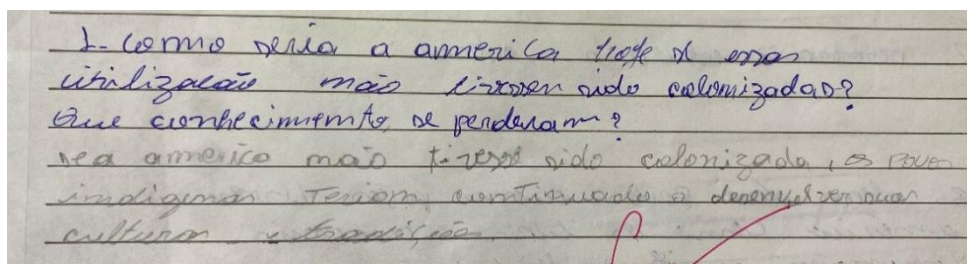 1- como seria a america hoje se essas
civilização não tivessem sido colonizadas?
Que conhecimento se perderam?
se a america não tivesse sido colonizada, os povos
indigenas Teriam continuado a desenvolver suas
culturas e tradições